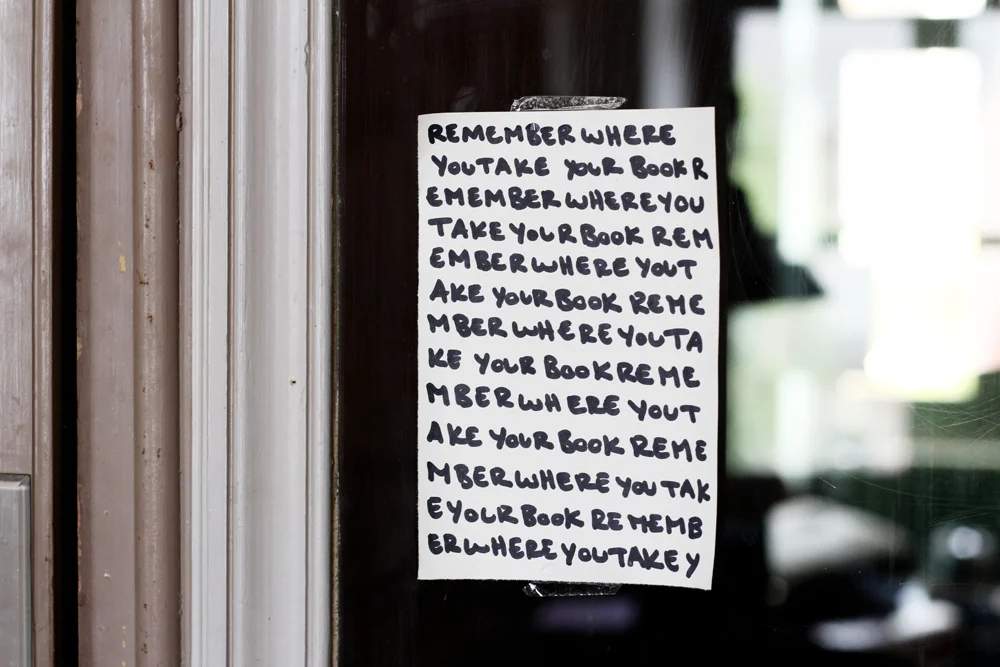 REMEMBER WHERE
YOU TAKE YOUR BOOK R
EMEMBER WHERE YOU
TAKE YOUR BOOK REM
EMBER WHERE YOU T
AKE YOUR BOOK REME
MBER WHERE YOU TA
KE YOUR BOOK REME
MBER WHERE YOU T
AKE YOUR BOOK REME
MBER WHERE YOU TAK
E YOUR BOOK REMEMB
ER WHERE YOU TAKE Y